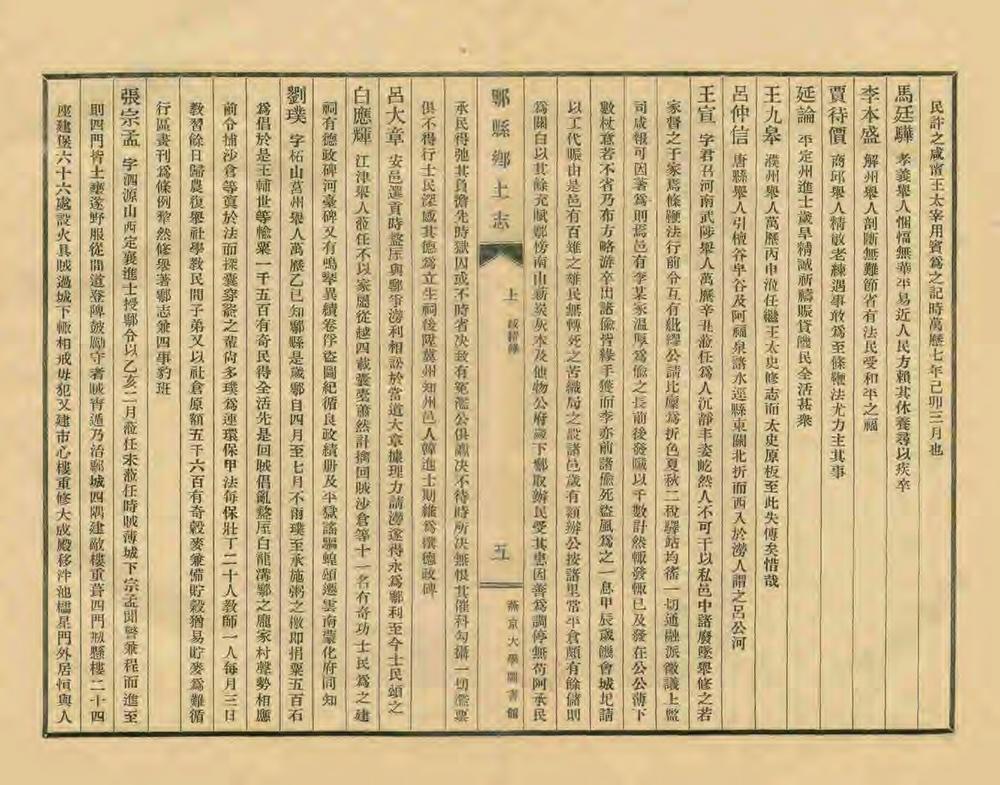 民許之咸甯王太宰用賓爲之記時萬歷七年己卯三月也
馬廷驊 孝義舉人悃愊無華平易近人民方賴其休養尋以疾卒
李本盛 解州舉人剖斷無難節省有法民受和平之福
賈待價 商邱舉人精敏老練遇事敢爲至條鞭法尤力主其事
延論 平定州進士歲旱精誠祈禱賑貸饑民全活甚衆
王九皋 濮州舉人萬歷丙申涖任繼王太史修志而太史原板至此失傳矣惜哉
呂仲信 唐縣舉人引檀谷阜谷及阿福泉諸水逕縣東關北折而西入於澇人謂之呂公河
王宣 字君召河南武陟舉人萬歷辛丑涖任爲人沉靜丰姿屹然人不可干以私邑中諸廢墜舉修之若
家督之于家焉條鞭法行前令互有紕繆公請比廩爲折色夏秋二稅驛站均徭一切通融派徵議上監
司咸報可因著爲則焉邑有李某家溫厚爲偷之長前後發贓以千數計然輒發輒已及發在公公薄下
數杖意若不省乃布方略游卒出諸偷皆緣手獲而李亦前諸偷死盜風爲之一息甲辰歲饑會城圮請
以工代賑由是邑有百雉之雄民無轉死之苦織局之設諸邑歲有額辦公按諸里常平倉頗有餘儲則
爲關白以其餘充賦鄠傍南山薪炭灰木及他物公府歲下鄠取辦民受其患因善爲調停無苟阿承民
鄠縣鄉土志
上 政績錄
五
燕京大學圖書館
承民得弛其負擔先時獄囚或不時省决致有冤濫公俱讞决不待時所决無恨其催科勾攝一切濫票
俱不得行士民深感其德爲立生祠後陞冀州知州邑人韓進士期維爲撰德政碑
呂大章 安邑選貢時盩厔與鄠爭澇利相訟於當道大章據理力請澇遂得永爲鄠利至今士民頌之
白應輝 江津舉人涖任不以家屬從越四載囊橐蕭然計擒回賊沙倉等十一名有奇功士民爲之建
祠有德政碑河臺碑又有鳴琴異績卷俘盜圖紀循良政績册及平獄謠驅蝗頌遷雲南蒙化府同知
劉璞 字柘山莒州舉人萬歷乙巳知鄠縣是歲鄠自四月至七月不雨璞至承施粥之檄即捐粟五百石
爲倡於是王輔世等輸粟一千五百有奇民得全活先是回賊倡亂盩厔白龍溝鄠之龐家村聲勢相應
前令捕沙倉等寘於法而探囊穿窬之輩尙多璞爲連環保甲法每保壯丁二十人教師一人每月三日
教習餘日歸農復舉社學教民間子弟又以社倉原額五千六百有奇穀麥兼備貯穀猶易貯麥爲難循
行區畫刊爲條例犂然修舉著鄠志兼四事豹班
張宗孟 字泗源山西定襄進士授鄠令以乙亥二月涖任未涖任時賊薄城下宗孟聞警兼程而進至
則四門皆土壅遂野服從間道登陴鼓勵守者賊宵遁乃治鄠城四隅建敵樓重葺四門戒懸樓二十四
座建堡六十六處設火具賊過城下輒相戒毋犯又建市心樓重修大成殿移泮池櫺星門外居恒與人